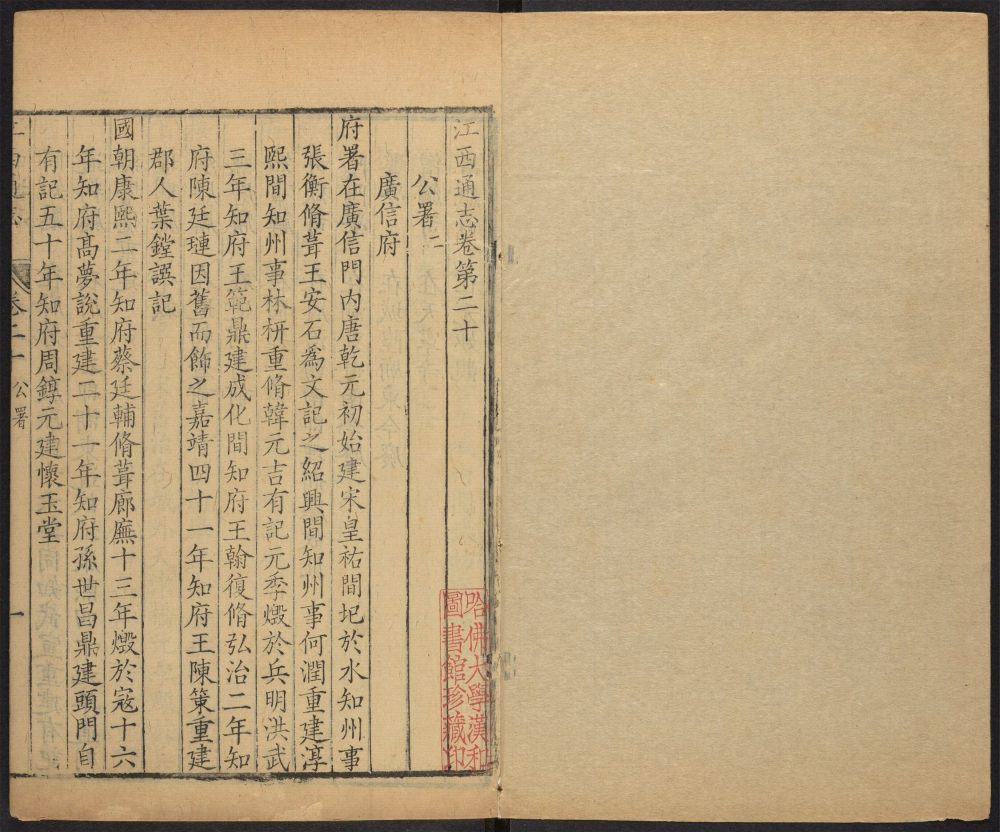 江西通志卷第二十
公署二
廣信府
府署在廣信門内唐乾元初始建宋皇祐間圯於水知州事
張衡脩葺王安石爲文記之紹興間知州事何潤重建淳
熙間知州事林枅重脩韓元吉有記元季燬於兵明洪武
三年知府王範鼎建成化間知府王翰復脩弘治二年知
府陳廷璉因舊而飾之嘉靖四十一年知府王陳策重建
郡人葉鏜譔記
國朝康熙二年知府蔡廷輔脩葺廊廡十三年燬於寇十六
年知府高夢說重建二十一年知府孫世昌鼎建頭門自
有記五十年知府周錞元建懷玉堂
江西通志
卷二十
公署
一
哈佛大學漢和
圖書館珍藏印